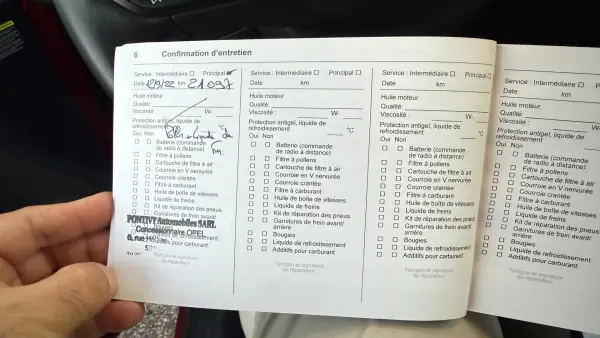 6 Confirmation d'entretien
Service : Intermédiaire ☐ Principal
Date 12/9/22 km 21 097
Huile moteur
Qualité:
Viscosité : W-
Protection antigel, liquide de
refroidissement
Oui Non
Batterie (commande
de radio à distance)
Filtre à pollens
Cartouche de filtre à air
Courroie en V nervurée
Courroie crantée
Filtre à carburant
Huile de boîte de vitesses
Liquide de freins
Kit de réparation des pneus
Garnitures de frein avant/
PONTIVY Automobiles SARL
Concessionnaire OPEL
6, rue Hélène
Tampon et signature
du réparateur
Service : Intermédiaire ☐ Principal ☐
Date km
Huile moteur
Qualité:
Viscosité : W-
Protection antigel, liquide de
refroidissement °C
Oui Non
☐ ☐ Batterie (commande
de radio à distance)
☐ ☐ Filtre à pollens
☐ ☐ Cartouche de filtre à air
☐ ☐ Courroie en V nervurée
☐ ☐ Courroie crantée
☐ ☐ Filtre à carburant
☐ ☐ Huile de boîte de vitesses
☐ ☐ Liquide de freins
☐ ☐ Kit de réparation des pneus
☐ ☐ Garnitures de frein avant/
arrière
☐ ☐ Bougies
☐ ☐ Liquide de refroidissement
☐ ☐ Additifs pour carburant
Tampon et signature
du réparateur
Service : Intermédiaire ☐ Principal ☐
Date km
Huile moteur
Qualité:
Viscosité : W-
Protection antigel, liquide de
refroidissement °C
Oui Non
☐ ☐ Batterie (commande
de radio à distance)
☐ ☐ Filtre à pollens
☐ ☐ Cartouche de filtre à air
☐ ☐ Courroie en V nervurée
☐ ☐ Courroie crantée
☐ ☐ Filtre à carburant
☐ ☐ Huile de boîte de vitesses
☐ ☐ Liquide de freins
☐ ☐ Kit de réparation des pneus
☐ ☐ Garnitures de frein avant/
arrière
☐ ☐ Bougies
☐ ☐ Liquide de refroidissement
☐ ☐ Additifs pour carburant
Tampon et signature
du réparateur
Service : Intermédiaire ☐
Date km
Huile moteur
Qualité:
Viscosité : W-
Protection antigel, liquide de
refroidissement
Oui Non
☐ ☐ Batterie (commande
de radio à distance)
☐ ☐ Filtre à pollens
☐ ☐ Cartouche de filtre à air
☐ ☐ Courroie en V nervurée
☐ ☐ Courroie crantée
☐ ☐ Filtre à carburant
☐ ☐ Huile de boîte de vitesses
☐ ☐ Liquide de freins
☐ ☐ Kit de réparation des pneus
☐ ☐ Garnitures de frein avant/
arrière
☐ ☐ Bougies
☐ ☐ Liquide de refroidissement
☐ ☐ Additifs pour carburant
Tampon et signature
du réparateur